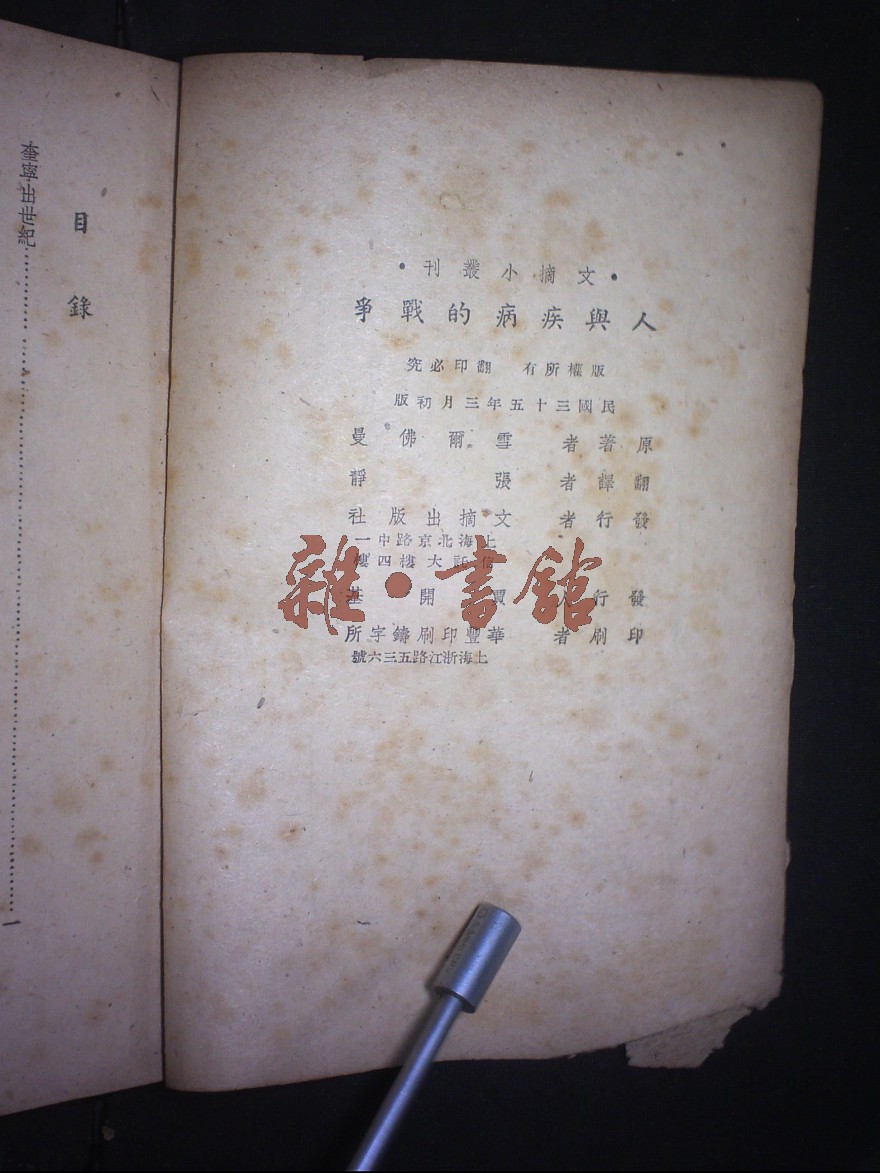 •文摘小叢刊•
人與疾病的戰爭
版權所有 翻印必究
民國三十五年三月初版
原著者 雪爾佛曼
翻譯者 張靜
發行者 文摘出版社
上海北京路中一
信託大樓四樓
發行人 賈開基
印刷者 華豐印刷鑄字所
上海浙江路五三六號
雜•書館
目錄
奎寧出世紀……一